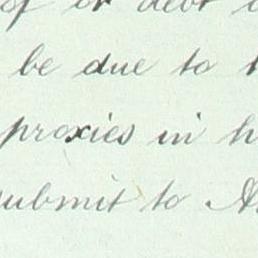 of or debt
be due to
proxies in
submit to